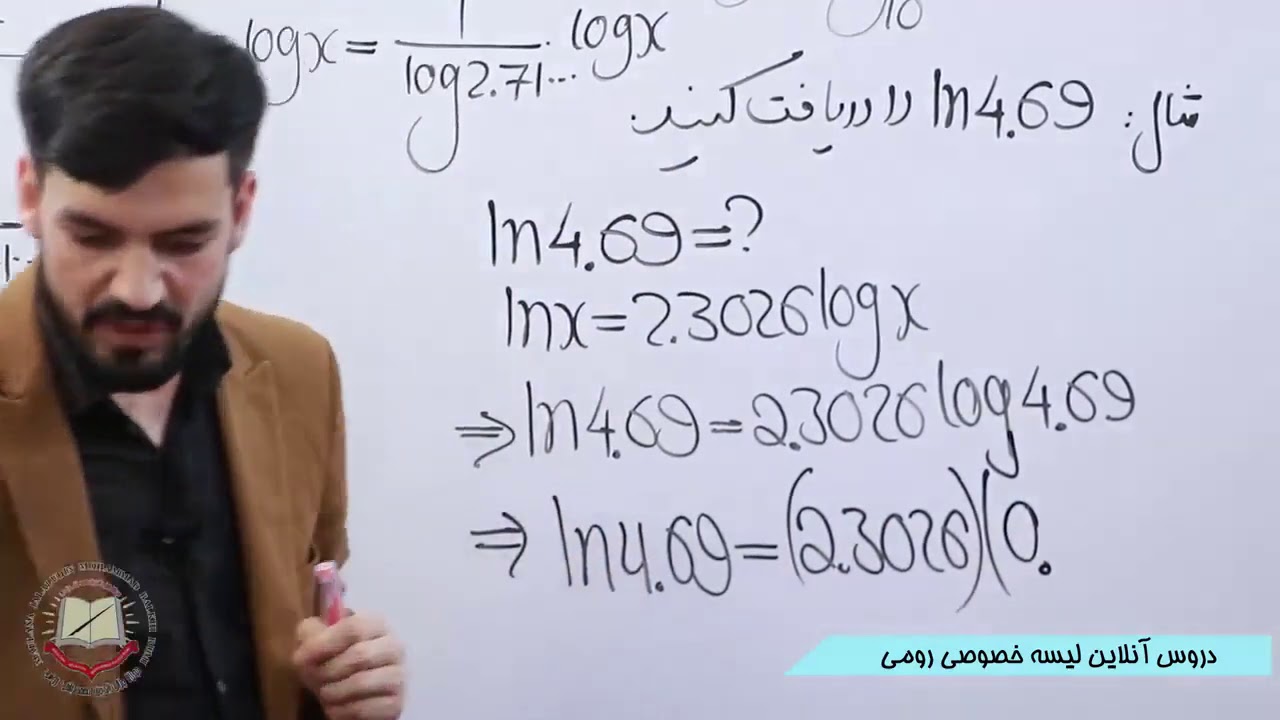 log x = 1 / log 2.71... · log x
10
مثال: ln4.69 را دریافت کنید.
ln4.69=?
lnx=2.3026logx
⇒ln4.69=2.3026log4.69
⇒ln4.69=(2.3026)(0.
دروس آنلاین لیسه خصوصی رومی